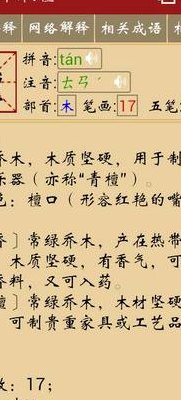 释 网络解释 相关成语
拼音: tán
注音: ㄊㄢˊ
部首: 木 笔画: 17 五笔
乔木，木质坚硬，用于制
乐器（亦称“青檀”）。
色：檀口（形容红艳的嘴
〕常绿乔木，产在热带
，木质坚硬，有香气，可
香料，又可入药。
檀〕常绿乔木，木材坚硬
，可制贵重家具或工艺品
数：17；